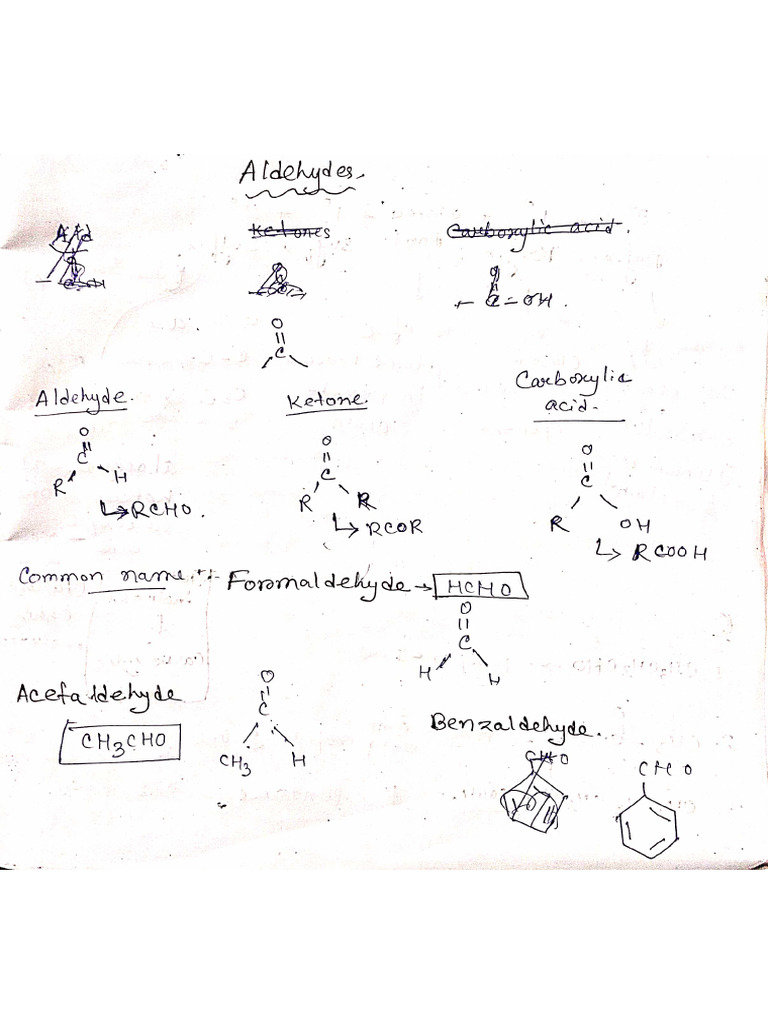 Aldehydes
Ald Ketones Carboxylic acid.
O
C = OH.
O
C
Aldehyde. Ketone. Carboxylic
acid.
O O O
C C C
R H R R R OH
RCHO. RCOR RCOOH
Common name :- Formaldehyde → HCHO
O
C
H H
Acetaldehyde
CH3CHO
O
C
CH3 H
Benzaldehyde.
CHO CHO